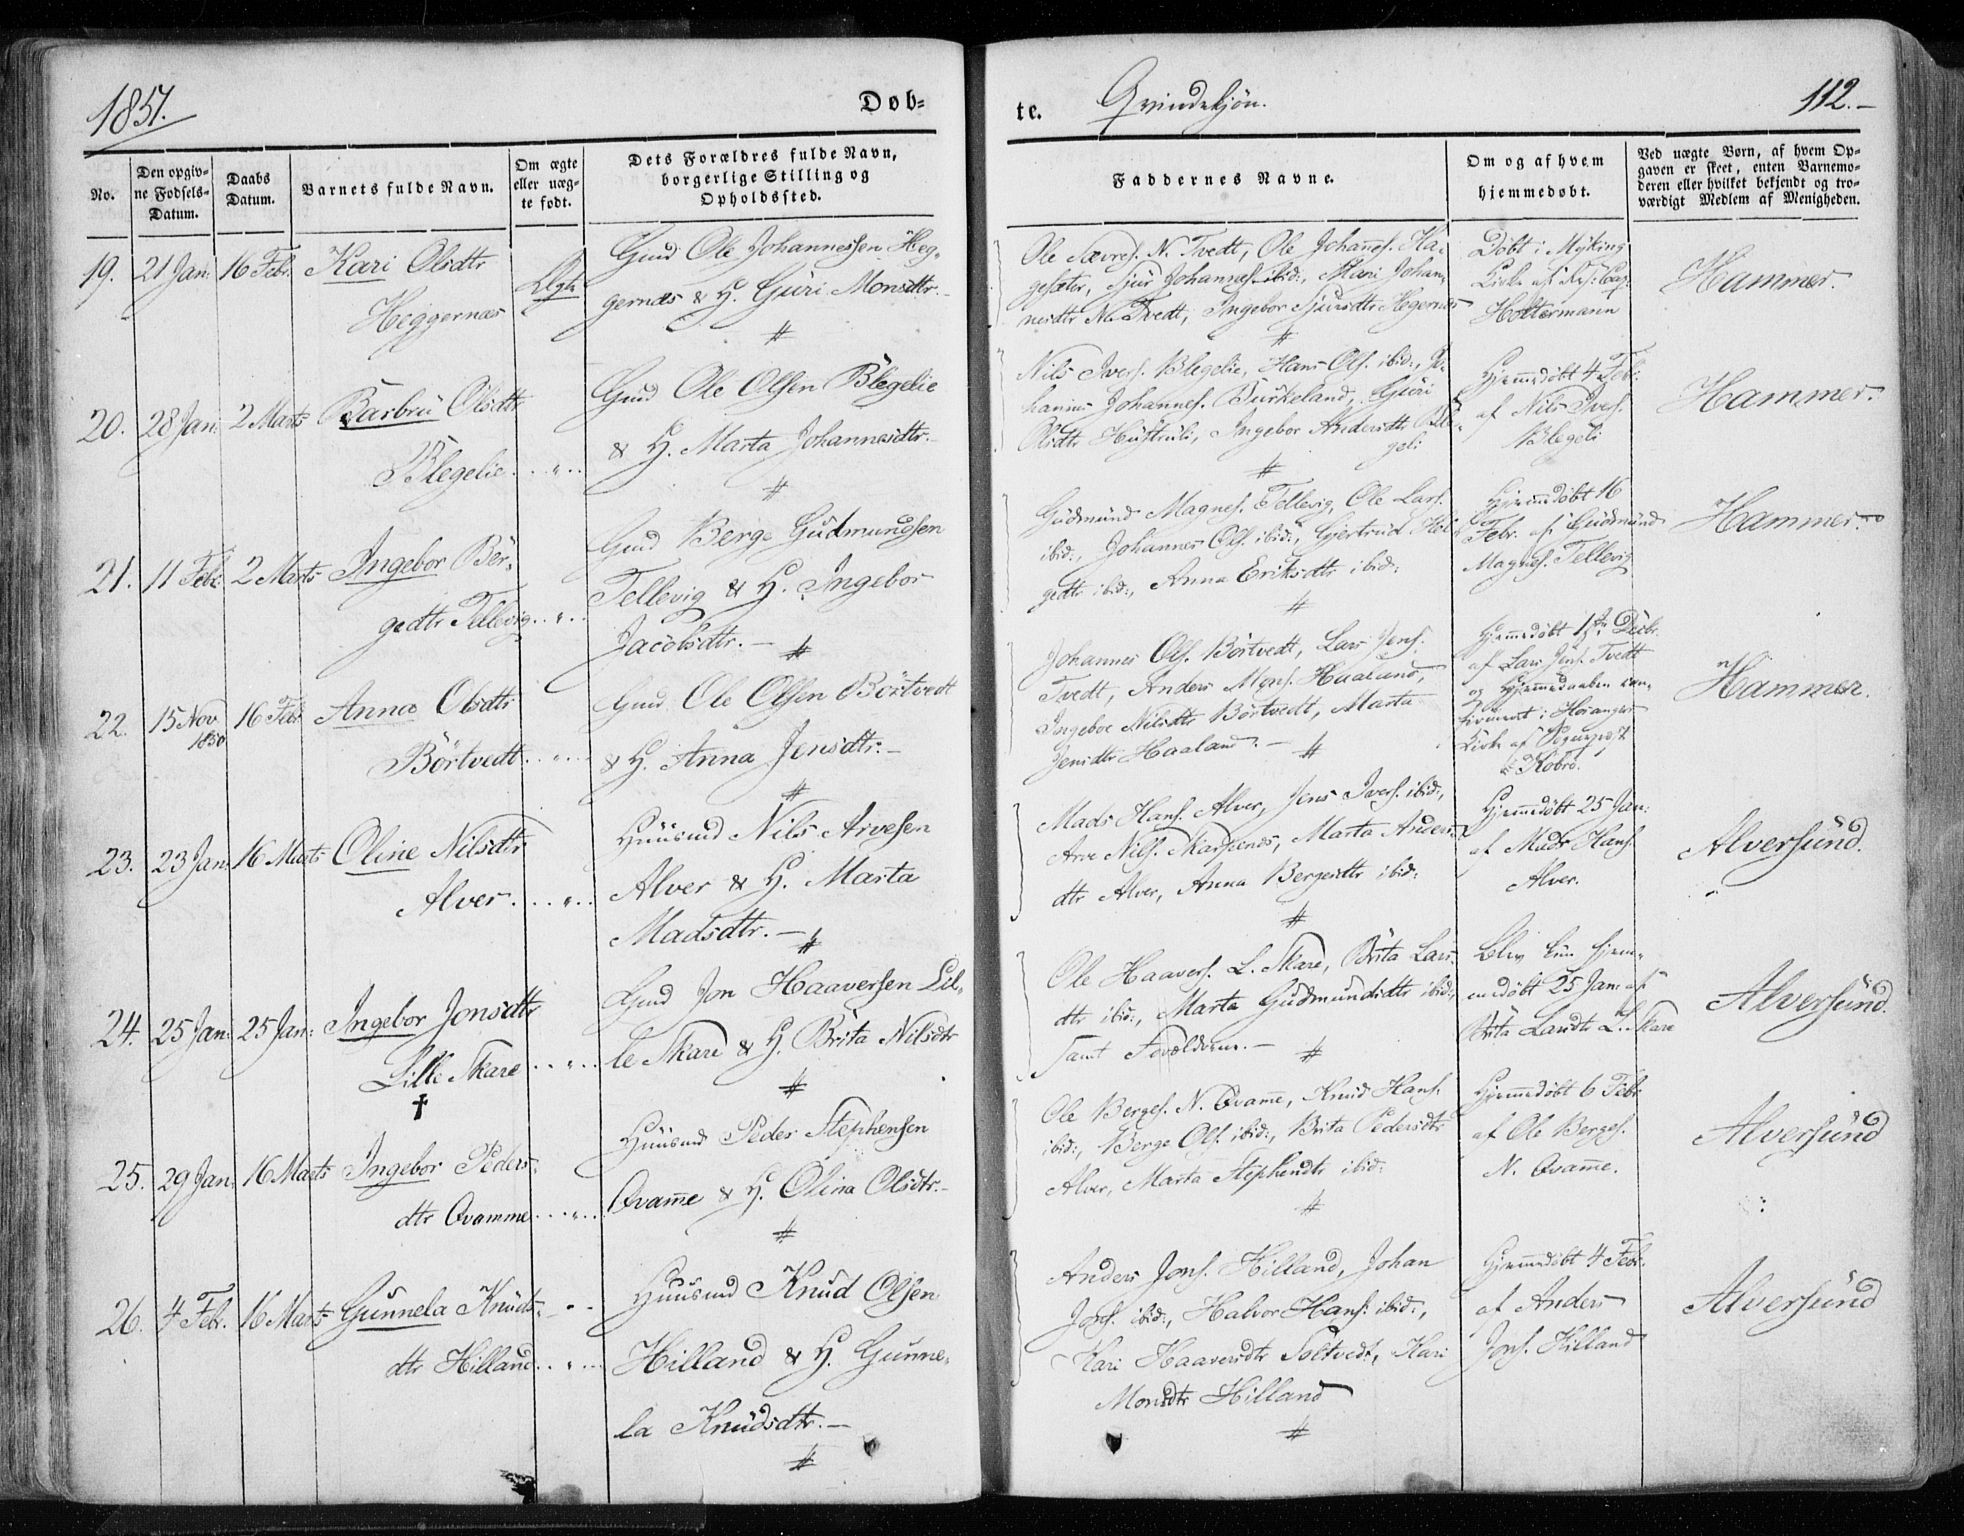 1851.
Døb-
te. Qvindekjøn.
112.-
No.
Den opgiv-
ne Fødsels-
Datum.
Daabs
Datum.
Barnets fulde Navn.
Om ægte
eller uæg-
te født.
Dets Forældres fulde Navn,
borgerlige Stilling og
Opholdssted.
Faddernes Navne.
Om og af hvem
hjemmedøbt.
Ved uægte Børn, af hvem Op-
gaven er skeet, enten Barnemo-
deren eller hvilket bekjendt og tro-
værdigt Medlem af Menigheden.
19. 21 Jan: 16 Febr. Kari Olsdtr
Heggernæs
Ægte
Gmd Ole Johannessen Heg-
gernæs & H. Guri Monsdtr.-
Ole Sævres. N. Tvedt, Ole Johannes. Ha-
gesæter, Sjur Johannes. ibid:, Mari Johan-
nesdtr N. Tvedt, Ingebor Sjursdtr Hegernæs
Døbt i Myking
Kirke af Res: Cap:
Holtermann
Hammer.
20. 28 Jan: 2 Marts Barbru Olsdtr
Blegelie
Gmd Ole Olsen Blegelie
& H. Marta Johannesdtr.-
Nils Ivers. Blegelie, Hans Ols. ibid:, Jo-
hannes Johannes. Burkeland, Guri
Olsdtr Hustruli, Ingebor Andersdtr Ble-
geli
Hjemmedøbt 4 Febr:
af Nils Ives.
Blegeli
Hammer.
21. 11 Febr: 2 Marts Ingebor Ber-
gedtr Tellevig
Gmd Berge Gudmundsen
Tellevig & H. Ingebor
Jacobsdtr.-
Gudmund Magnes. Tellevig, Ole Lars.
ibid:, Johannes Ols. ibid:, Gjertrud Hel-
gedtr ibid:, Anna Eriksdtr ibid:
Hjemmedøbt 16
Febr. af Gudmund
Magnes. Tellevig
Hammer.
22. 15 Nov 1850 16 Febr Anna Olsdtr
Börtvedt
Gmd Ole Olsen Börtvedt
& H. Anna Jensdtr:-
Johannes Ols. Börtvedt, Lars Jens.
Tvedt, Anders Mons. Haaland,
Ingebor Nilsdtr Börtvedt, Marta
Jensdtr Haaland.-
Hjemmedøbt 1ste Decbr.
af Lars Jens. Tvedt
og Hjemmedaaben con-
firmeret i Hosanger
Kirke af Sognepræst
Kobro.
Hammer.
23. 23 Jan: 16 Marts Oline Nilsdtr
Alver
Huusmd Nils Arvesen
Alver & H. Marta
Madsdtr.-
Mads Hans. Alver, Jens Ivers. ibid:,
Arve Nils. Marsteenes, Marta Anders-
dtr Alver, Anna Bergesdtr ibid:
Hjemmedøbt 25 Jan:
af Mads Hans.
Alver.
Alversund.
24. 25 Jan: 25 Jan: Ingebor Jonsdtr
Lille Skare
Gmd Jon Haaversen Lil-
le Skare & H. Brita Nilsdtr
Ole Haavers. L. Skare, Brita Lars-
dtr ibid:, Marta Gudmundsdtr ibid:,
samt Forældrene.-
Blev kun hjem-
medøbt 25 Jan: af
Brita Larsdtr L. Skare
Alversund.
25. 29 Jan: 16 Marts Ingebor Peders-
dtr Qvamme
Huusmd Peder Stephensen
Qvamme & H. Olina Olsdtr.-
Ole Berges. N. Qvamme, Knud Hans.
ibid:, Berge Ols. ibid:, Brita Pedersdtr
Alver, Marta Stephensdtr ibid:
Hjemmedøbt 6 Febr:
af Ole Berges.
N. Qvamme.
Alversund
26. 4 Febr. 16 Marts Gunnela Knuds-
dtr Hilland
Huusmd Knud Olsen
Hilland & H. Gunne-
la Knudsdtr.-
Anders Jons. Hilland, Johan
Jons. ibid:, Halvor Hans. ibid:,
Kari Haaversdtr Soltvedt, Kari
Monsdtr Hilland
Hjemmedøbt 4 Febr.
af Anders
Jons. Hilland
Alversund